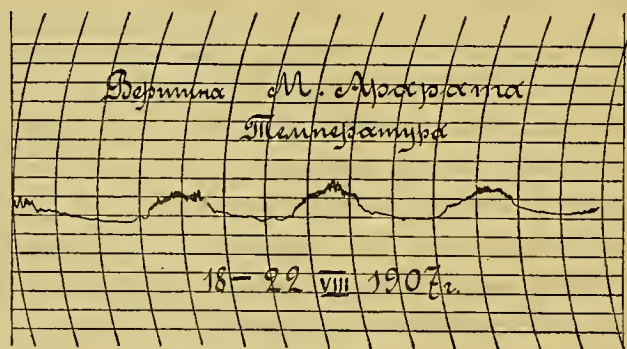 Вершина М. Арарата
Температура
18–22 VIII 1907 г.